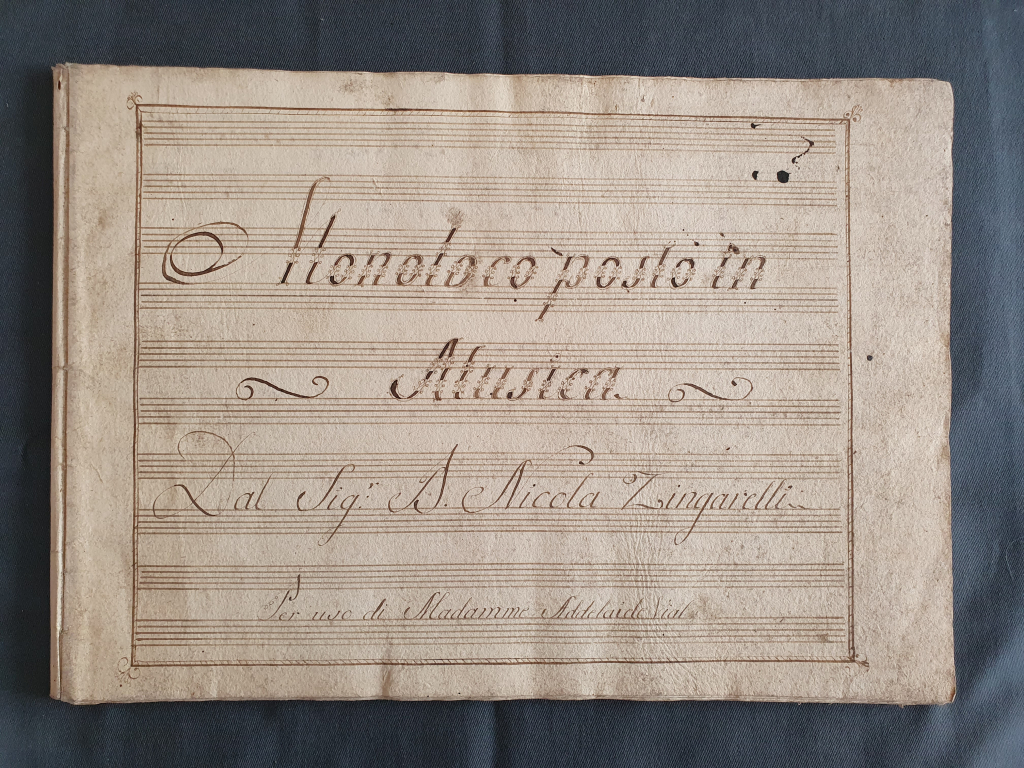 Monoloco posto in
Musica.
Dal Sig.r D. Nicola Zingarelli
Per uso di Madamme Addelaide Vial